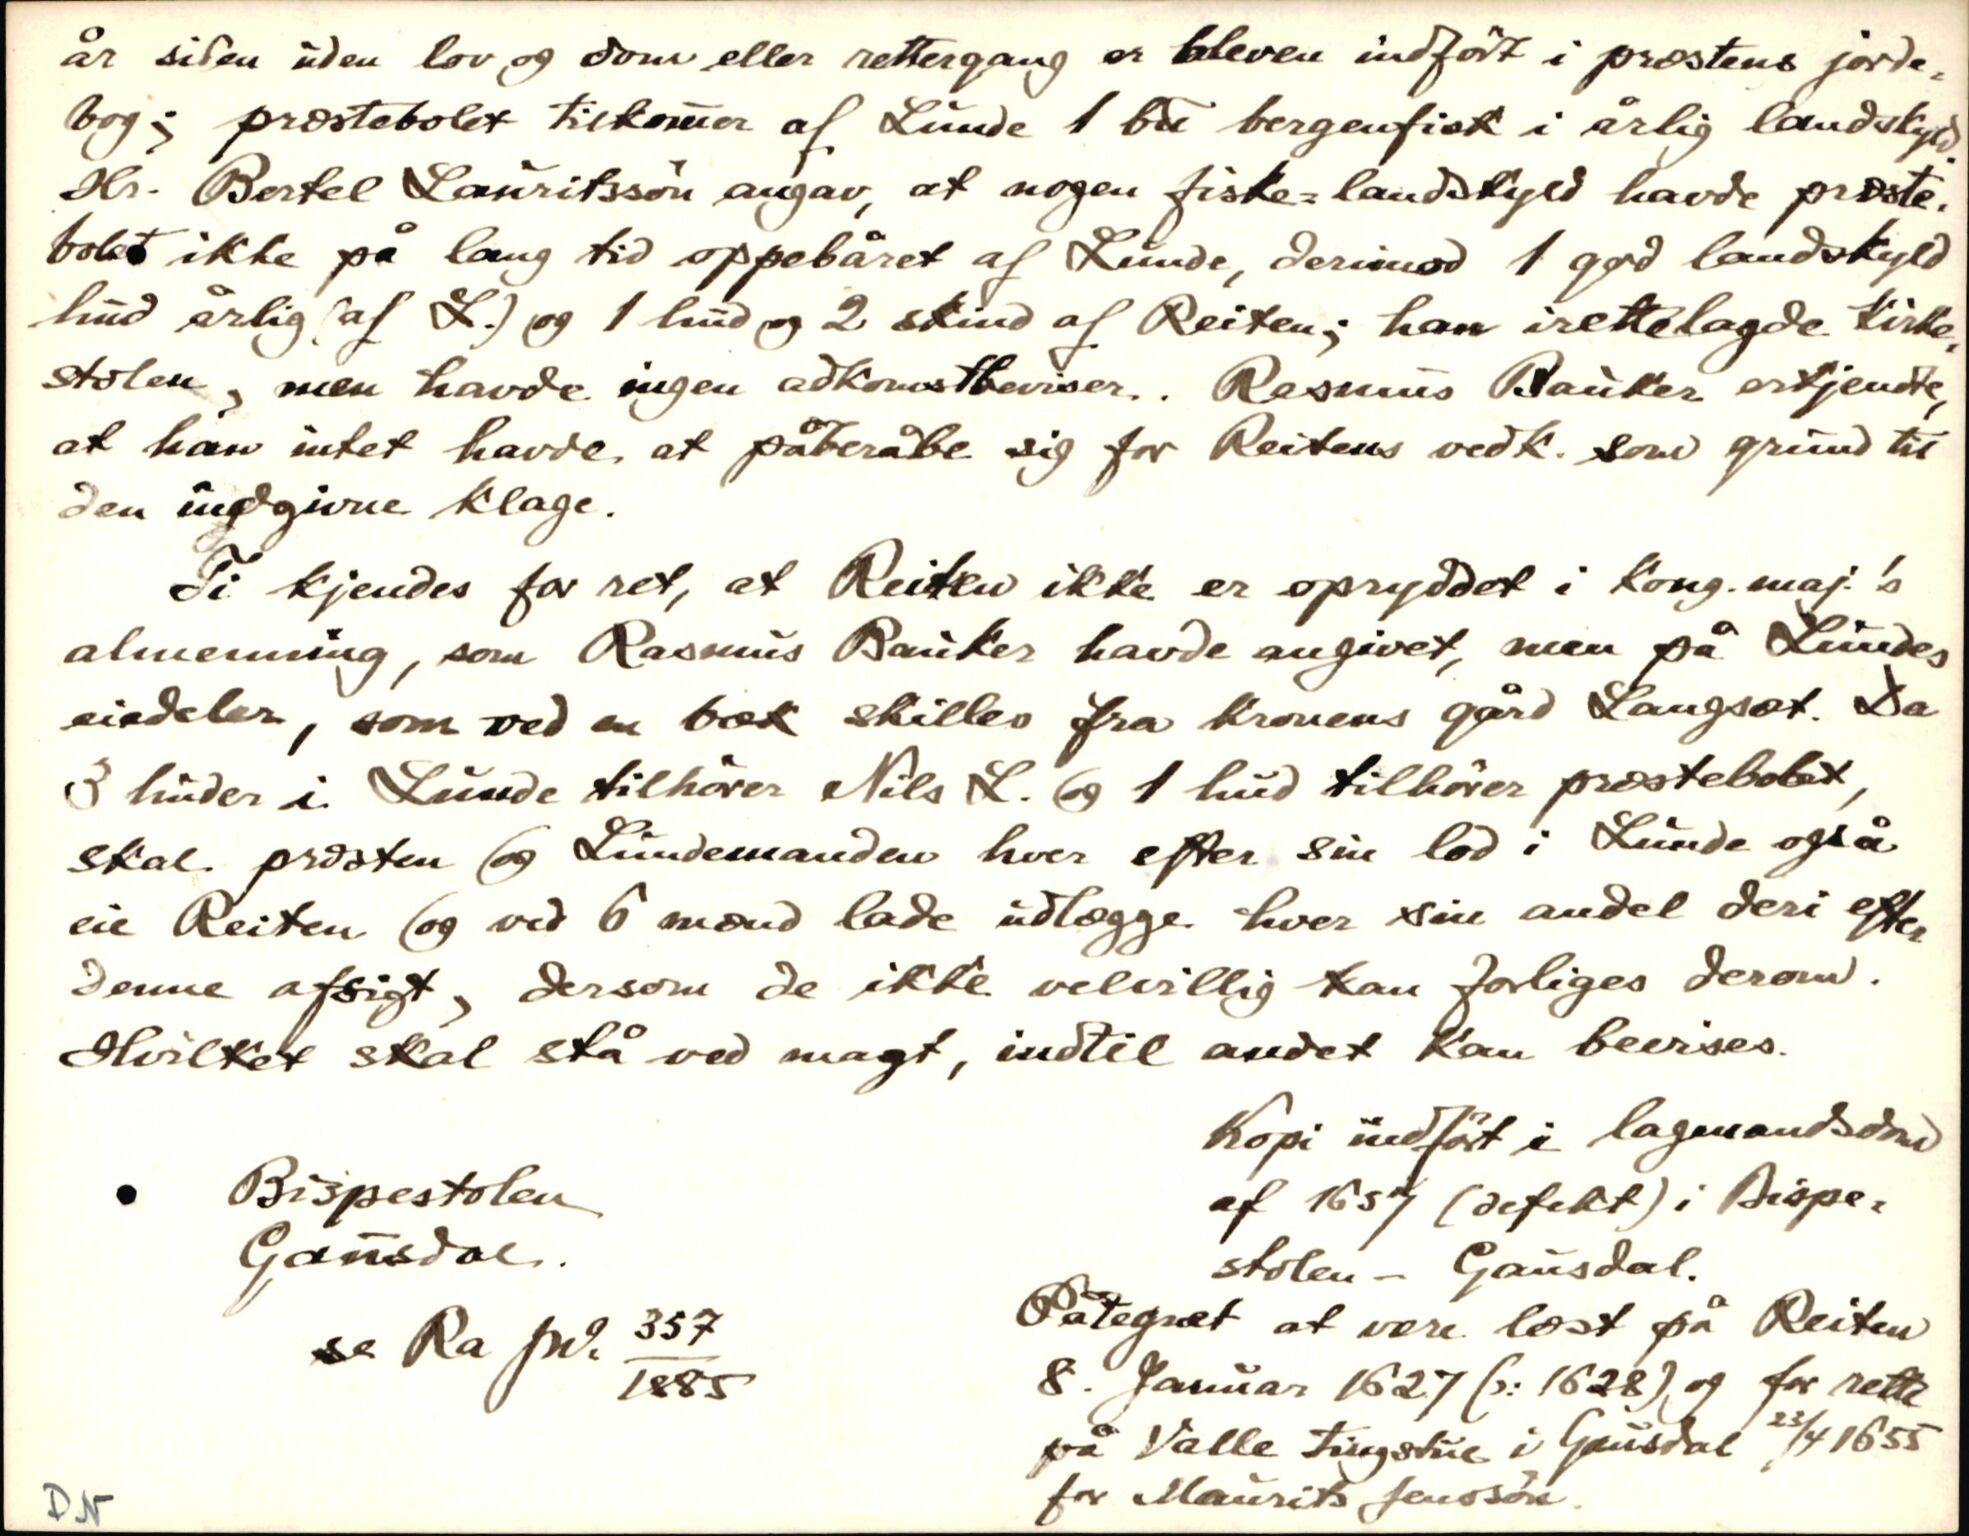 år siden uden lov og dom eller rettergang er bleven indført i præstens jorde-
bog; præstebolet tilkommer af Lunde 1 bu bergenfisk i årlig landskyld.
Hr. Bertel Lauritssön angav, at nogen fiske-landskyld havde præste-
bolet ikke på lang tid oppebåret af Lunde, derimod 1 god landskyld
hud årlig (af L.) og 1 hud og 2 skind af Reiten; han irettelagde kirke-
stolen, men havde ingen adkomstbeviser. Rasmus Bauker erkjendte,
at han intet havde at påberåbe sig for Reitens vedk. som grund til
den indgivne klage.
Ti kjendes for ret, at Reiten ikke er opryddet i kong. maj.'s
almenning, som Rasmus Bauker havde angivet, men på Lundes
eiedeler, som ved en bæk skilles fra kronens gård Langsæt. Da
3 huder i Lunde tilhörer Nils L. og 1 hud tilhörer præstebolet,
skal præsten og Lundemanden hver efter sin lod i Lunde også
eie Reiten og ved 6 mænd lade udlægge hver sin andel deri efter
denne afsigt, dersom de ikke velvillig kan forliges derom.
Hvilket skal stå ved magt, indtil andet kan bevises.
Kopi indfört i lagmandsdom
af 1657 (defekt) i Bispe-
stolen - Gausdal.
Påtegnet at være læst på Reiten
8. Januar 1627 (ɔ: 1628) og for rette
på Valle tingstue i Gausdal 23/4 1655
for Maurits Jenssön.
• Bispestolen
Gausdal.
se Ra jnr. 357/1885
DN